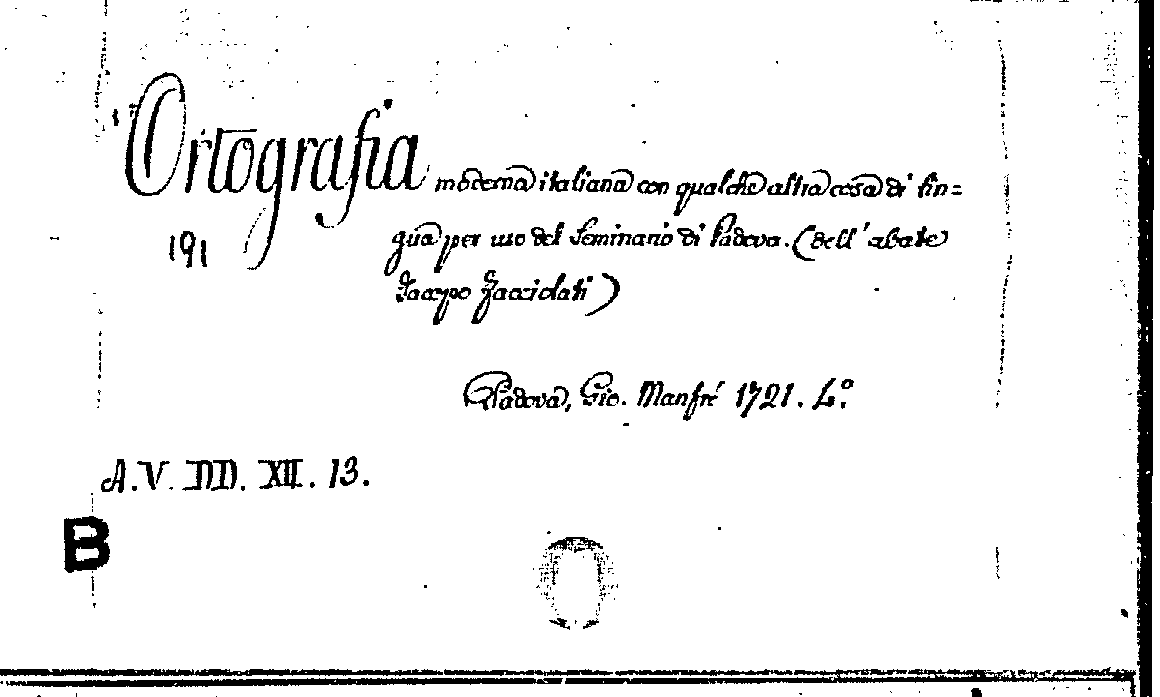 Ortografia moderna italiana con qualche altra cosa di lin=
gua per uso del Seminario di Padova. (dell' abate
Jacopo Facciolati)
191
Padova, Gio. Manfrè 1721. 4.º
A.V. DD. XII. 13.
B